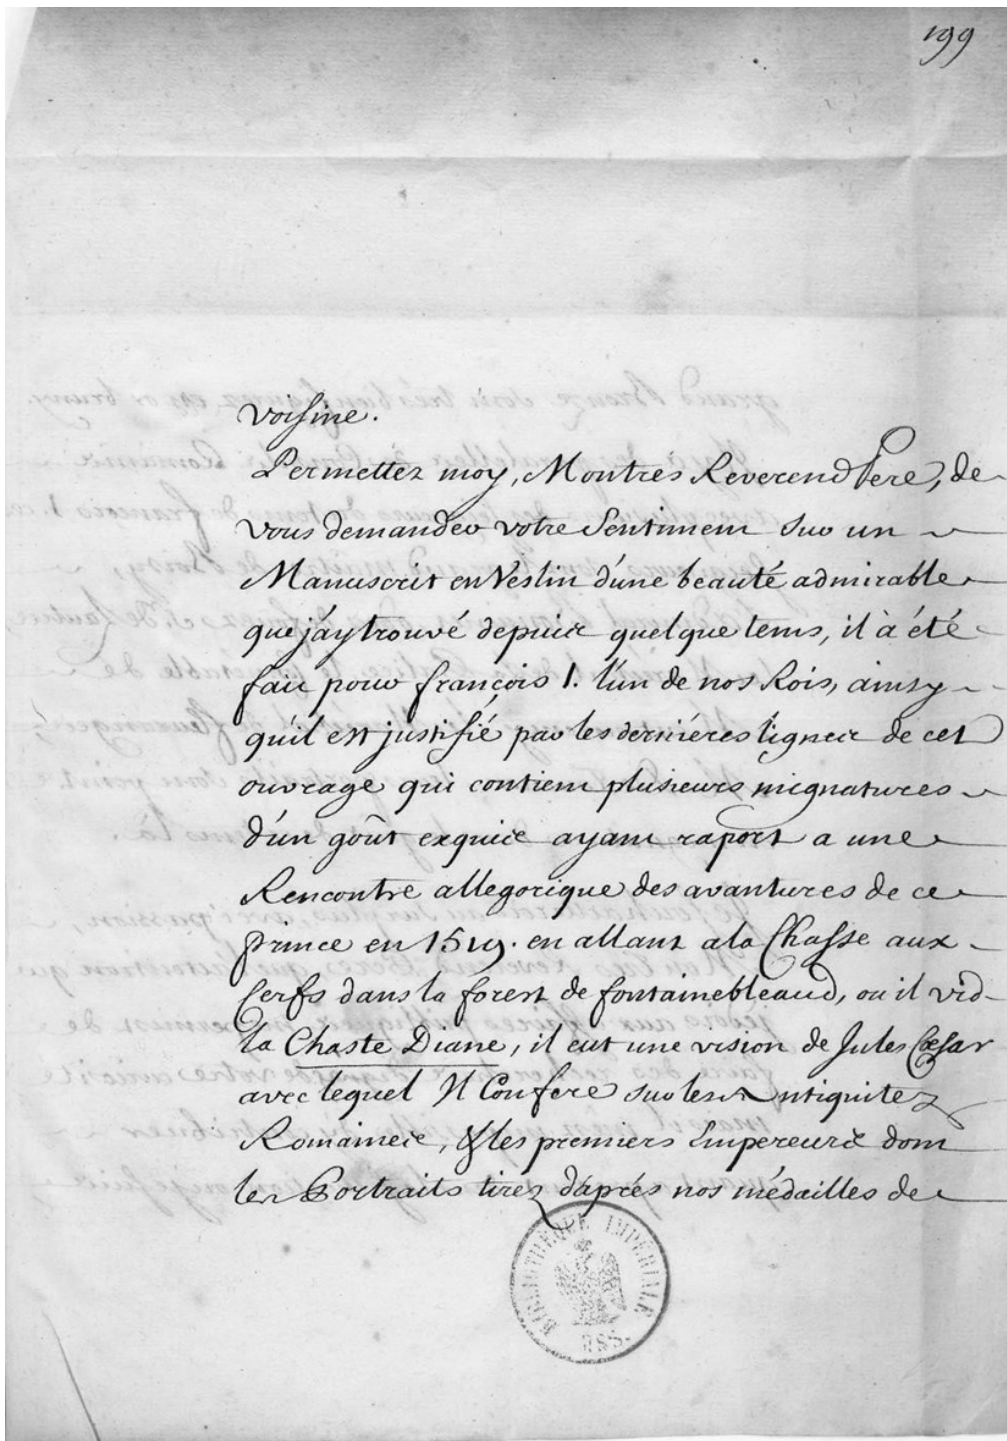 199
voisine.
Permettez moy, Mon tres Reverend Pere, de
vous demander votre sentiment sur un
Manuscrit en Veslin d'une beauté admirable
que j'ay trouvé depuis quelque tems, il à été
fait pour françois 1. l'un de nos Rois, ainsy
qu'il est justifié par les derniéres lignes de cet
ouvrage qui contient plusieurs mignatures
d'un goût exquis ayant raport a une
Rencontre allegorique des avantures de ce
prince en 1519. en allant a la Chasse aux
Cerfs dans la forest de fontainebleaud, ou il vid
la Chaste Diane, il eut une vision de Jules Cæsar
avec lequel Il Confere sur les Antiquitez
Romaines, & les premiers Empereurs dont
les Portraits tirez d'aprés nos médailles de
BIBLIOTHEQUE IMPÉRIALE
MSS.